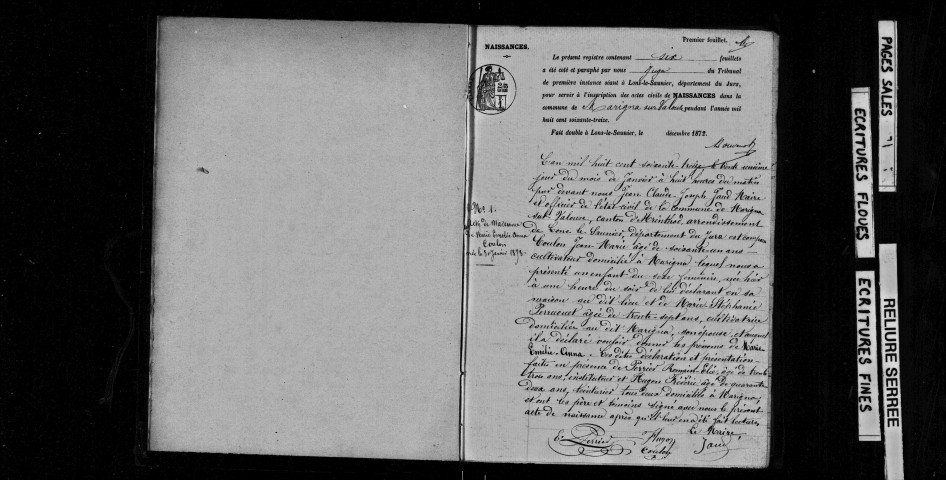 Premier feuillet.
NAISSANCES.
Le présent registre contenant six feuillets
a été coté et paraphé par nous Juge du Tribunal
de première instance séant à Lons-le-Saunier, département du Jura,
pour servir à l'inscription des actes civils de NAISSANCES dans la
commune de Marigna sur Valouse pendant l'année mil
huit cent soixante-treize.
Fait double à Lons-le-Saunier, le décembre 1872.
L'an mil huit cent soixante treize, le trente unième
jour du mois de Janvier à huit heures du matin
par devant nous Jean Claude Joseph Jaud Maire
et officier de l'état civil de la commune de Marigna
sur Valouse, canton d'Arinthod arrondissement
de Lons le Saunier, département du Jura est comparu
Coulon Jean Marie âgé de soixante un ans
cultivateur domicilié à Marigna lequel nous a
présenté un enfant du sexe féminin, née hier
à une heure du soir de lui déclarant en sa
maison au dit lieu et de Marie Stéphanie
âgée de trente-sept ans, cultivatrice
domiciliée au dit Marigna, son épouse et auquel
il a déclaré vouloir donner les prénoms de Marie
Emélie-Anna. Les dites déclaration et présentation
faites en présence de Perrier Romain âgé de trente
trois ans, instituteur et Hugon Frédéric âgé de quarante
deux ans, teinturier tous deux domiciliés à Marigna,
et ont les père et témoins signé avec nous le présent
acte de naissance après qu'il leur en a été fait lecture.
Le Maire
Perrier Hugon
Coulon Jaud
N° 1.
Acte de Naissance
de Marie Emélie Anna
Coulon
née le 30 janvier 1873.
PAGES SALES
ECRITURES FLOUES
ECRITURES FINES
RELIURE SERREE